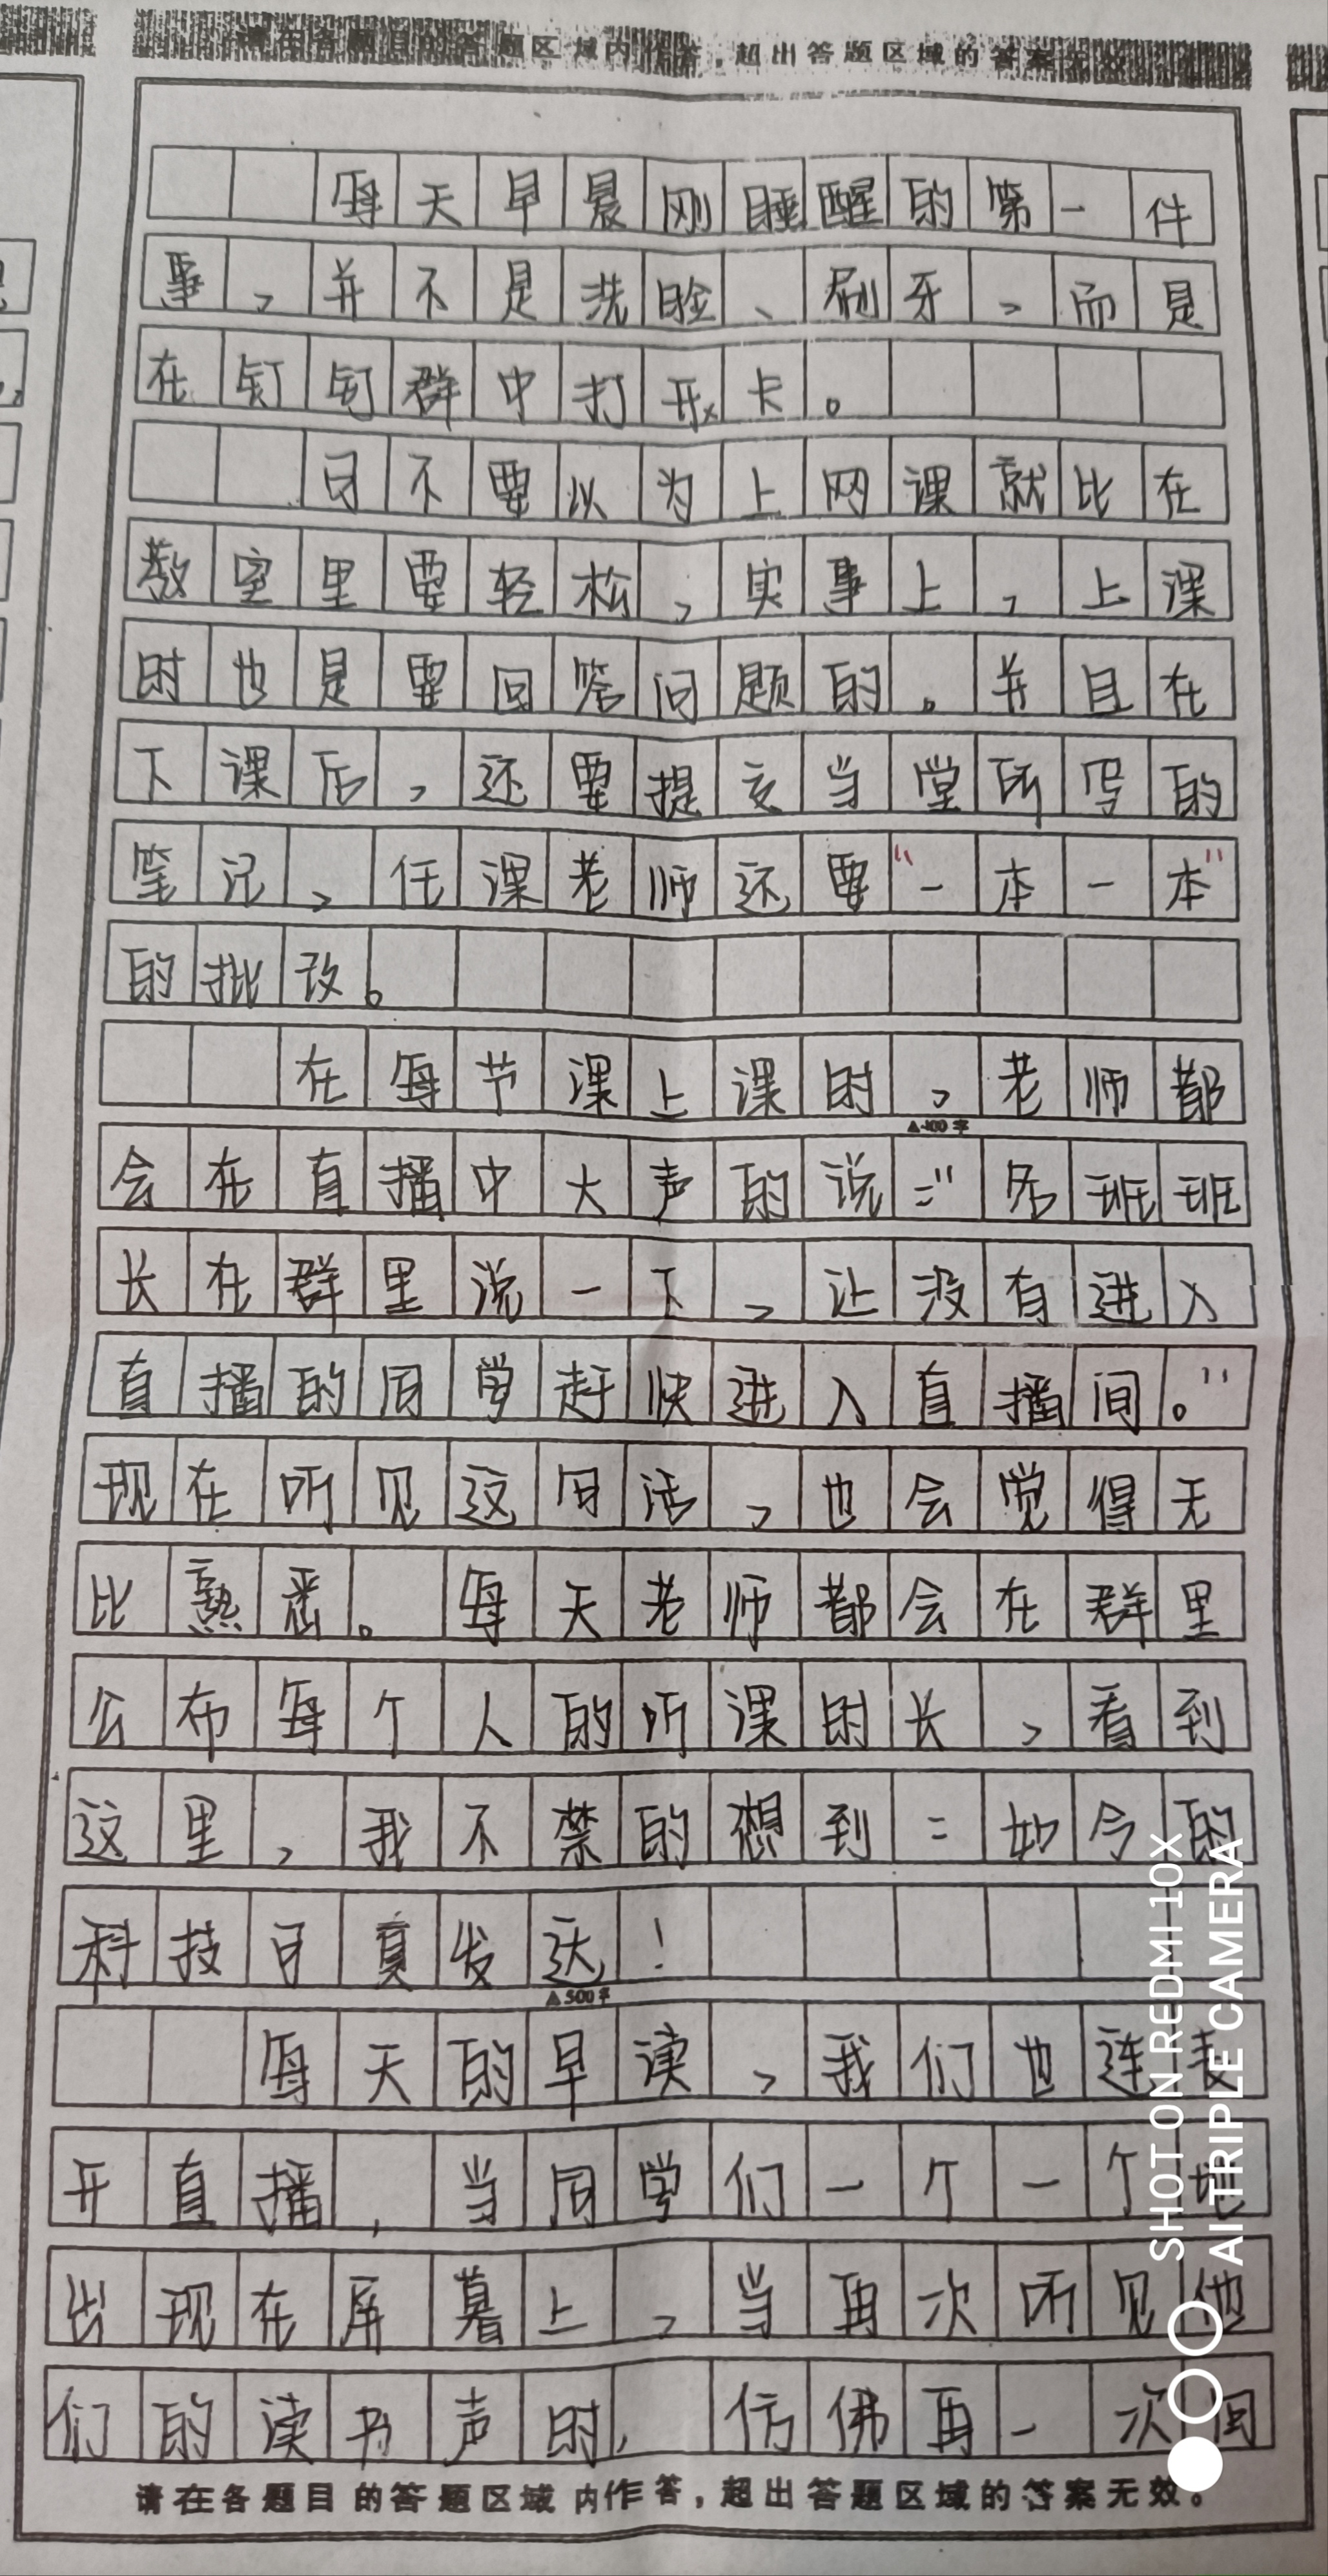 请在各题目的答题区域内作答，超出答题区域的答案无效
每天早晨刚睡醒的第一件
事，并不是洗脸、刷牙，而是
在钉钉群中打开卡。
可不要以为上网课就比在
教室里要轻松，实事上，上课
时也是要回答问题的。并且在
下课后，还要提交当堂所写的
笔记，任课老师还要“一本一本”
的批改。
在每节课上课时，老师都
▲400字
会在直播中大声的说：“各班班
长在群里说一下，让没有进入
直播的同学赶快进入直播间。”
现在听见这句话，也会觉得无
比熟悉。每天老师都会在群里
公布每个人的听课时长，看到
这里，我不禁的想到：如今的
科技可真发达！
▲500字
每天的早读，我们也连麦
开直播，当同学们一个一个地
出现在屏幕上，当再次听见他
们的读书声时，仿佛再一次回
请在各题目的答题区域内作答，超出答题区域的答案无效。
SHOT ON REDMI 10X
AI TRIPLE CAMERA